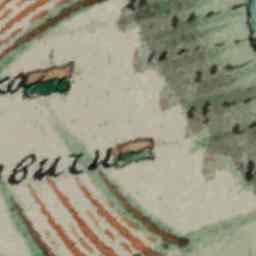 ко
вичи